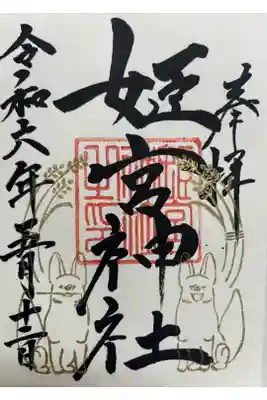 奉拝
姫宮神社
令和六年五月十二日